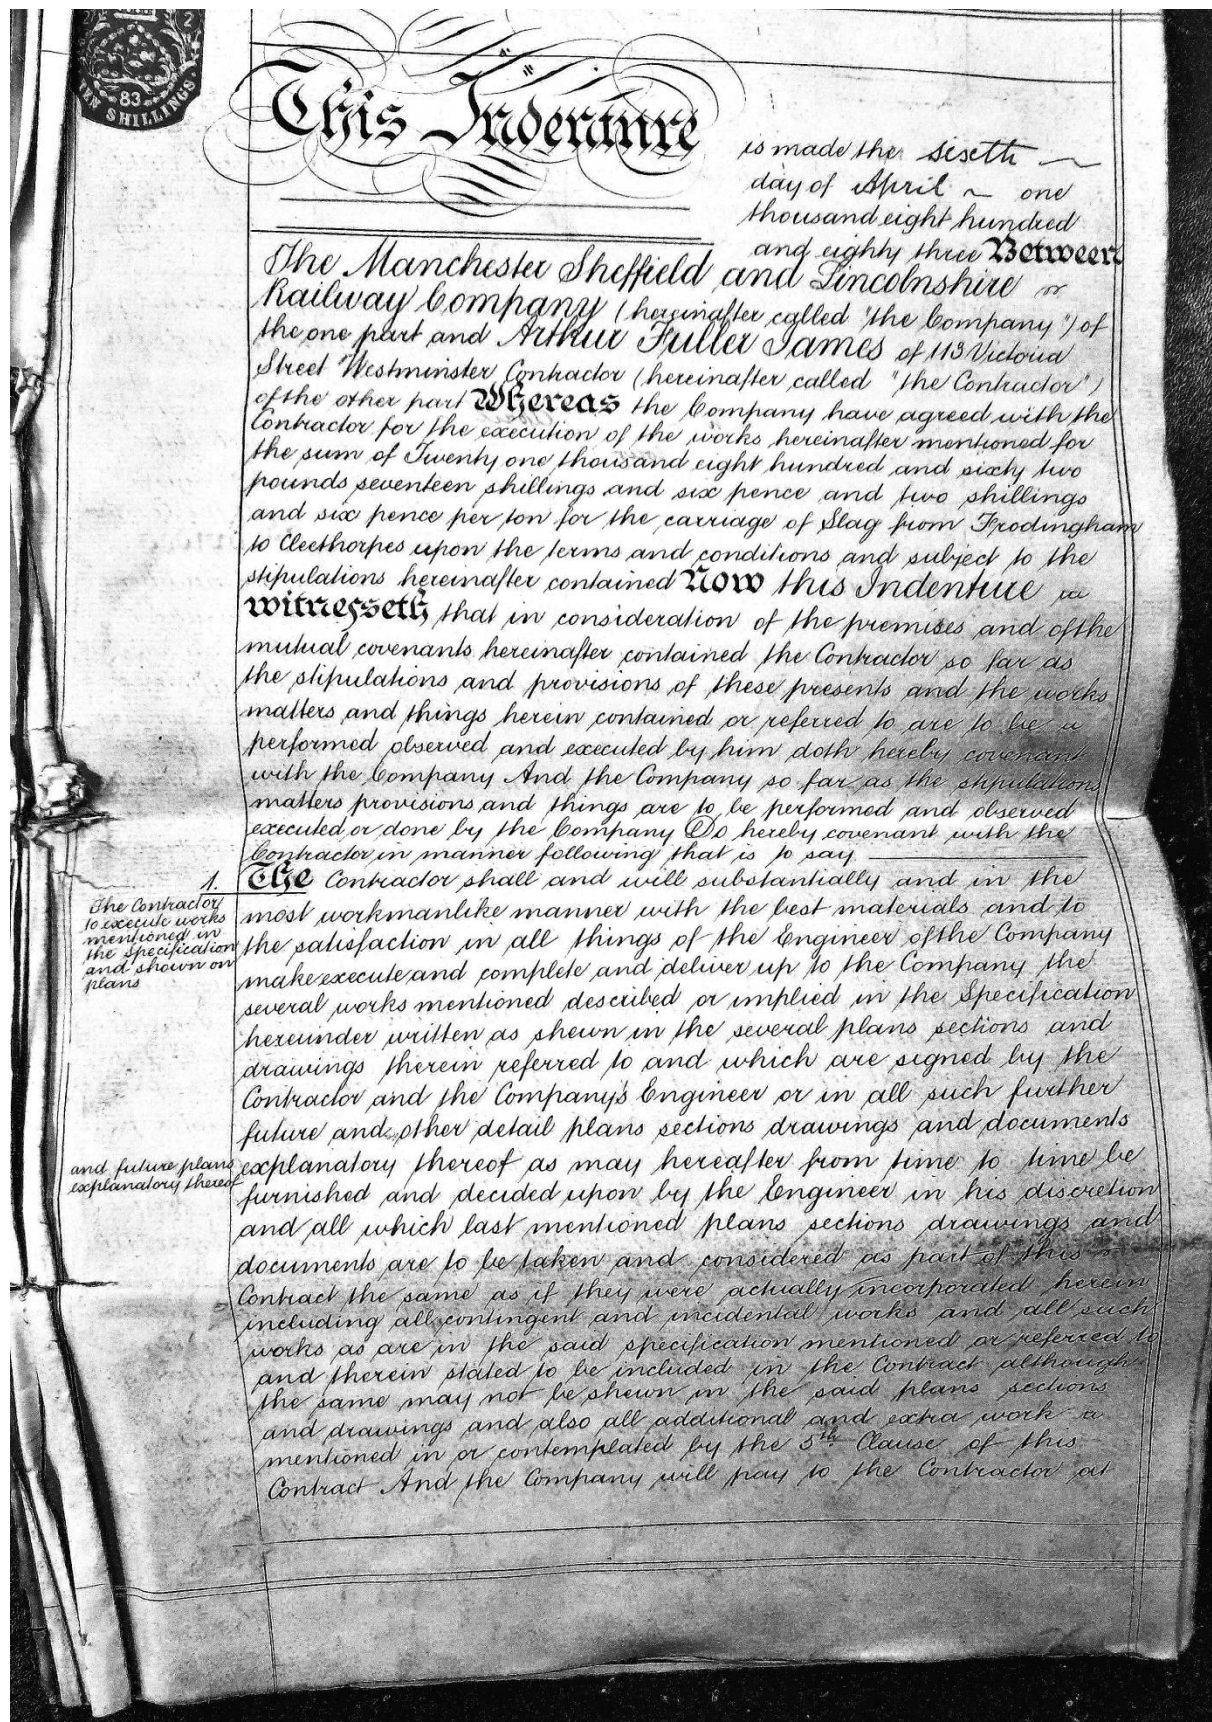 2 2
83
TEN SHILLINGS
This Indenture
is made the sixth
day of April one
thousand eight hundred
and eighty three Between
The Manchester Sheffield and Lincolnshire
Railway Company (hereinafter called "the Company") of
the one part and Arthur Fuller James of 113 Victoria
Street Westminster Contractor (hereinafter called "the Contractor")
of the other part Whereas the Company have agreed with the
Contractor for the execution of the works hereinafter mentioned for
the sum of Twenty one thousand eight hundred and sixty two
pounds seventeen shillings and six pence and two shillings
and six pence per ton for the carriage of Slag from Frodingham
to Cleethorpes upon the terms and conditions and subject to the
stipulations hereinafter contained Now this Indenture
witnesseth that in consideration of the premises and of the
mutual covenants hereinafter contained the Contractor so far as
the stipulations and provisions of these presents and the works
matters and things herein contained or referred to are to be
performed observed and executed by him doth hereby covenant
with the Company And the Company so far as the stipulations
matters provisions and things are to be performed and observed
executed or done by the Company Do hereby covenant with the
Contractor in manner following that is to say
1. The Contractor shall and will substantially and in the
The Contractor
to execute works
mentioned in
the specification
and shown on
plans
most workmanlike manner with the best materials and to
the satisfaction in all things of the Engineer of the Company
make execute and complete and deliver up to the Company the
several works mentioned described or implied in the Specification
hereunder written as shewn in the several plans sections and
drawings therein referred to and which are signed by the
Contractor and the Company's Engineer or in all such further
future and other detail plans sections drawings and documents
and future plans
explanatory thereof
explanatory thereof as may hereafter from time to time be
furnished and decided upon by the Engineer in his discretion
and all which last mentioned plans sections drawings and
documents are to be taken and considered as part of this
Contract the same as if they were actually incorporated herein
including all contingent and incidental works and all such
works as are in the said specification mentioned or referred to
and therein stated to be included in the Contract although
the same may not be shewn in the said plans sections
and drawings and also all additional and extra work
mentioned in or contemplated by the 5th Clause of this
Contract And the Company will pay to the Contractor at